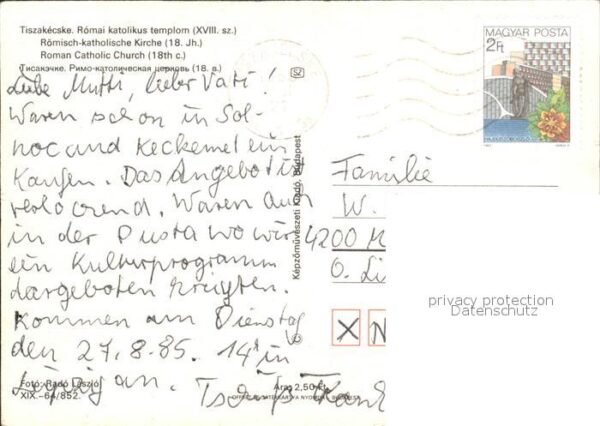 Tiszakécske. Római katolikus templom (XVIII. sz.)
Römisch-katholische Kirche (18. Jh.)
Roman Catholic Church (18th c.)
Тисакэчке. Римо-католическая церковь (18. в.)
Liebe Mutti, lieber Vati!
Waren schon in Sol-
noc und Keckemet ein
Kaufen. Das Angebot ist
verlockend. Waren auch
in der Pusta wo wir
ein Kulturprogramm
dargeboten kreigten.
Kommen am Dienstag
den 27.8.85. 14h in
Leipzig an.
Fotó: Radó László
XIX.-64/852.
Ára: 2,50 Ft
Képzőművészeti Kiadó, Budapest
MAGYAR POSTA
2Ft
Familie
W.
4200 M
O. Li
X N
privacy protection
Datenschutz